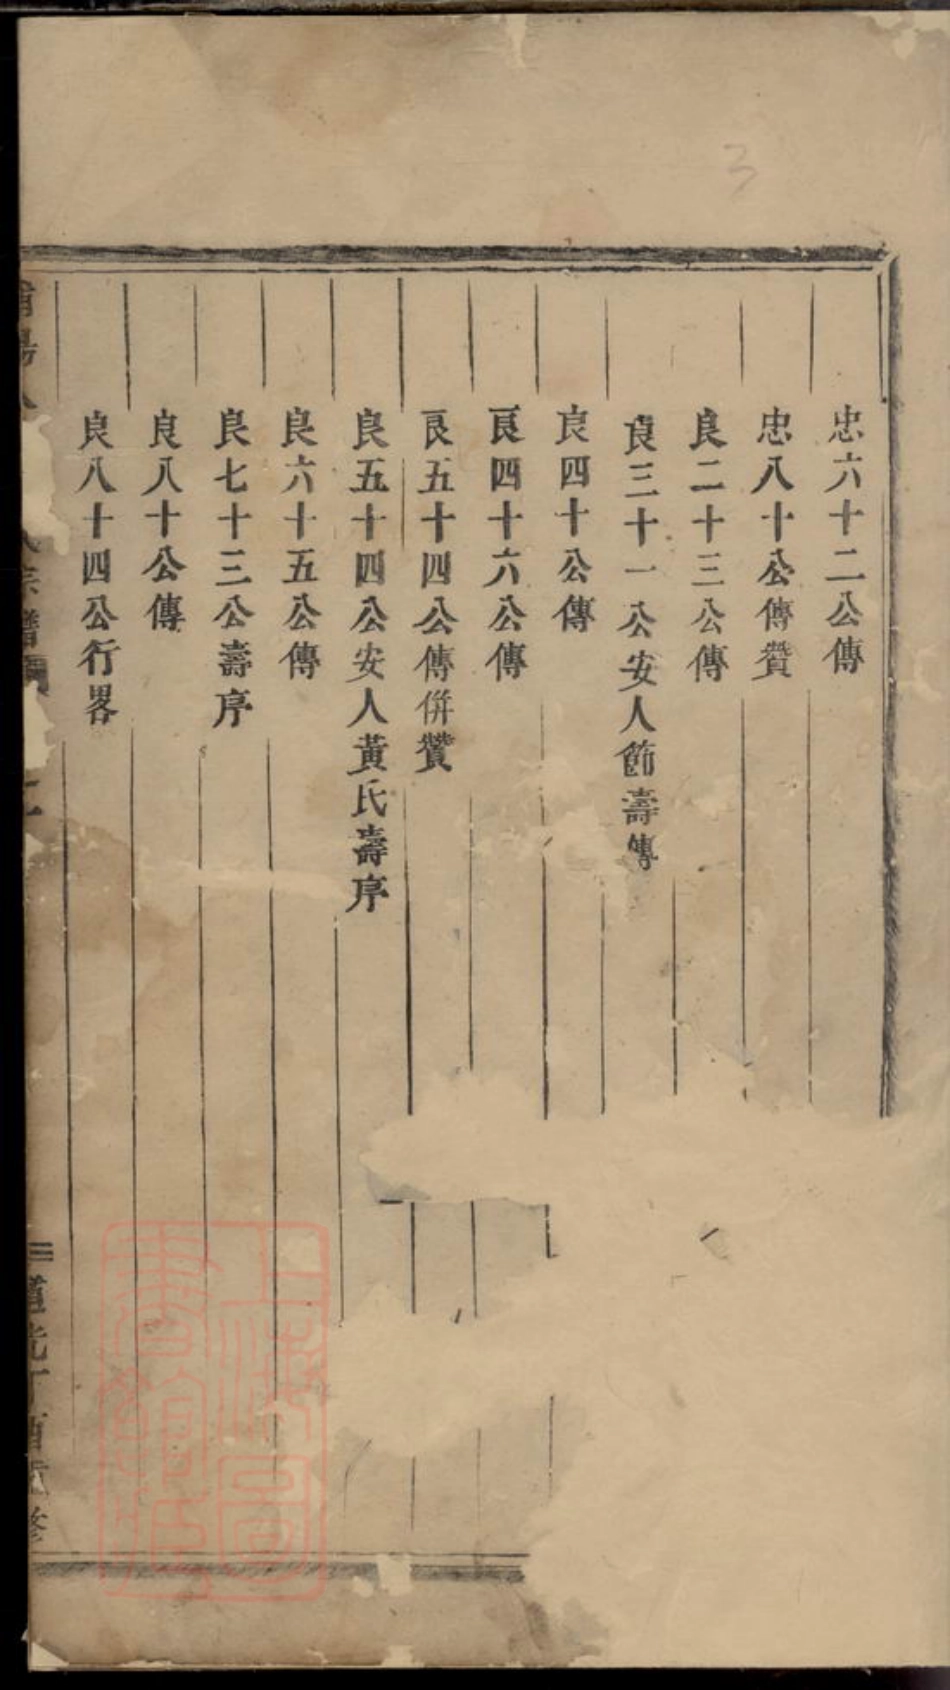 忠六十二公傳
忠八十公傳贊
良二十三公傳
良三十一公安人節壽傳
良四十公傳
良四十六公傳
良五十四公傳併贊
良五十四公安人黃氏壽序
良六十五公傳
良七十三公壽序
良八十公傳
良八十四公行畧
宗譜
道光丁酉
修
上海圖書館藏
3